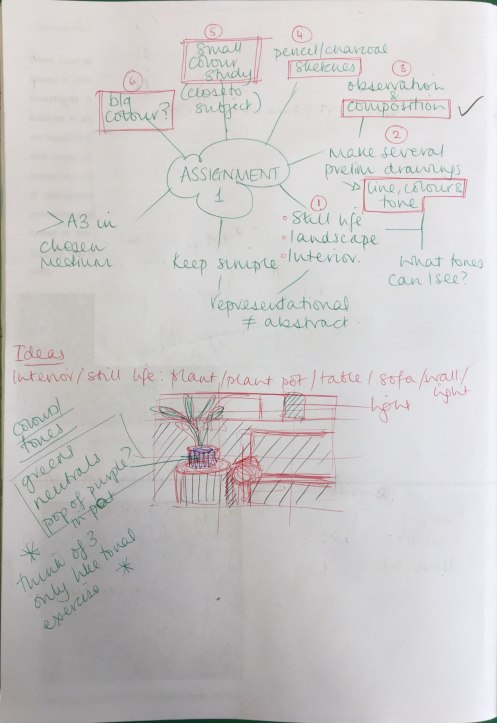 ⑤
small
colour
study
(close to
subject)
④
pencil/charcoal
sketches
③
observation
&
composition
⑥
big
colour?
②
Make several
prelim drawings
line, colour &
tone
What tones
can I see?
ASSIGNMENT
1
①
Still life
landscape
Interior.
Keep simple
representational
≠ abstract
> A3 in
chosen
medium
Ideas
Interior/still life. plant/plant pot/table/sofa/wall/
light
light
colour/
tones
greens
neutrals
pop of purple?
in pot
* think of 3
only like tonal
exercise *